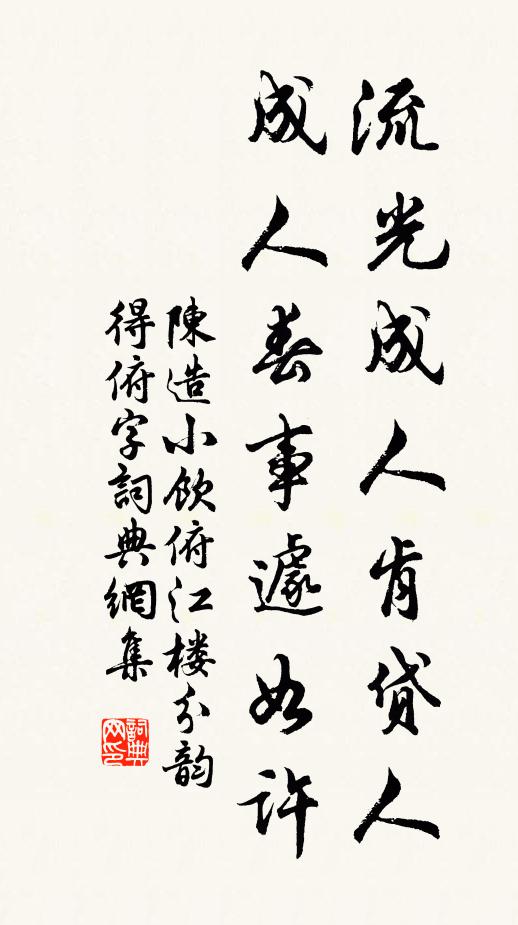 流光成人肯貸人
成人春事遽如許
陳造小飲俯江楼分韵
得俯字詞典網集
詞典網印